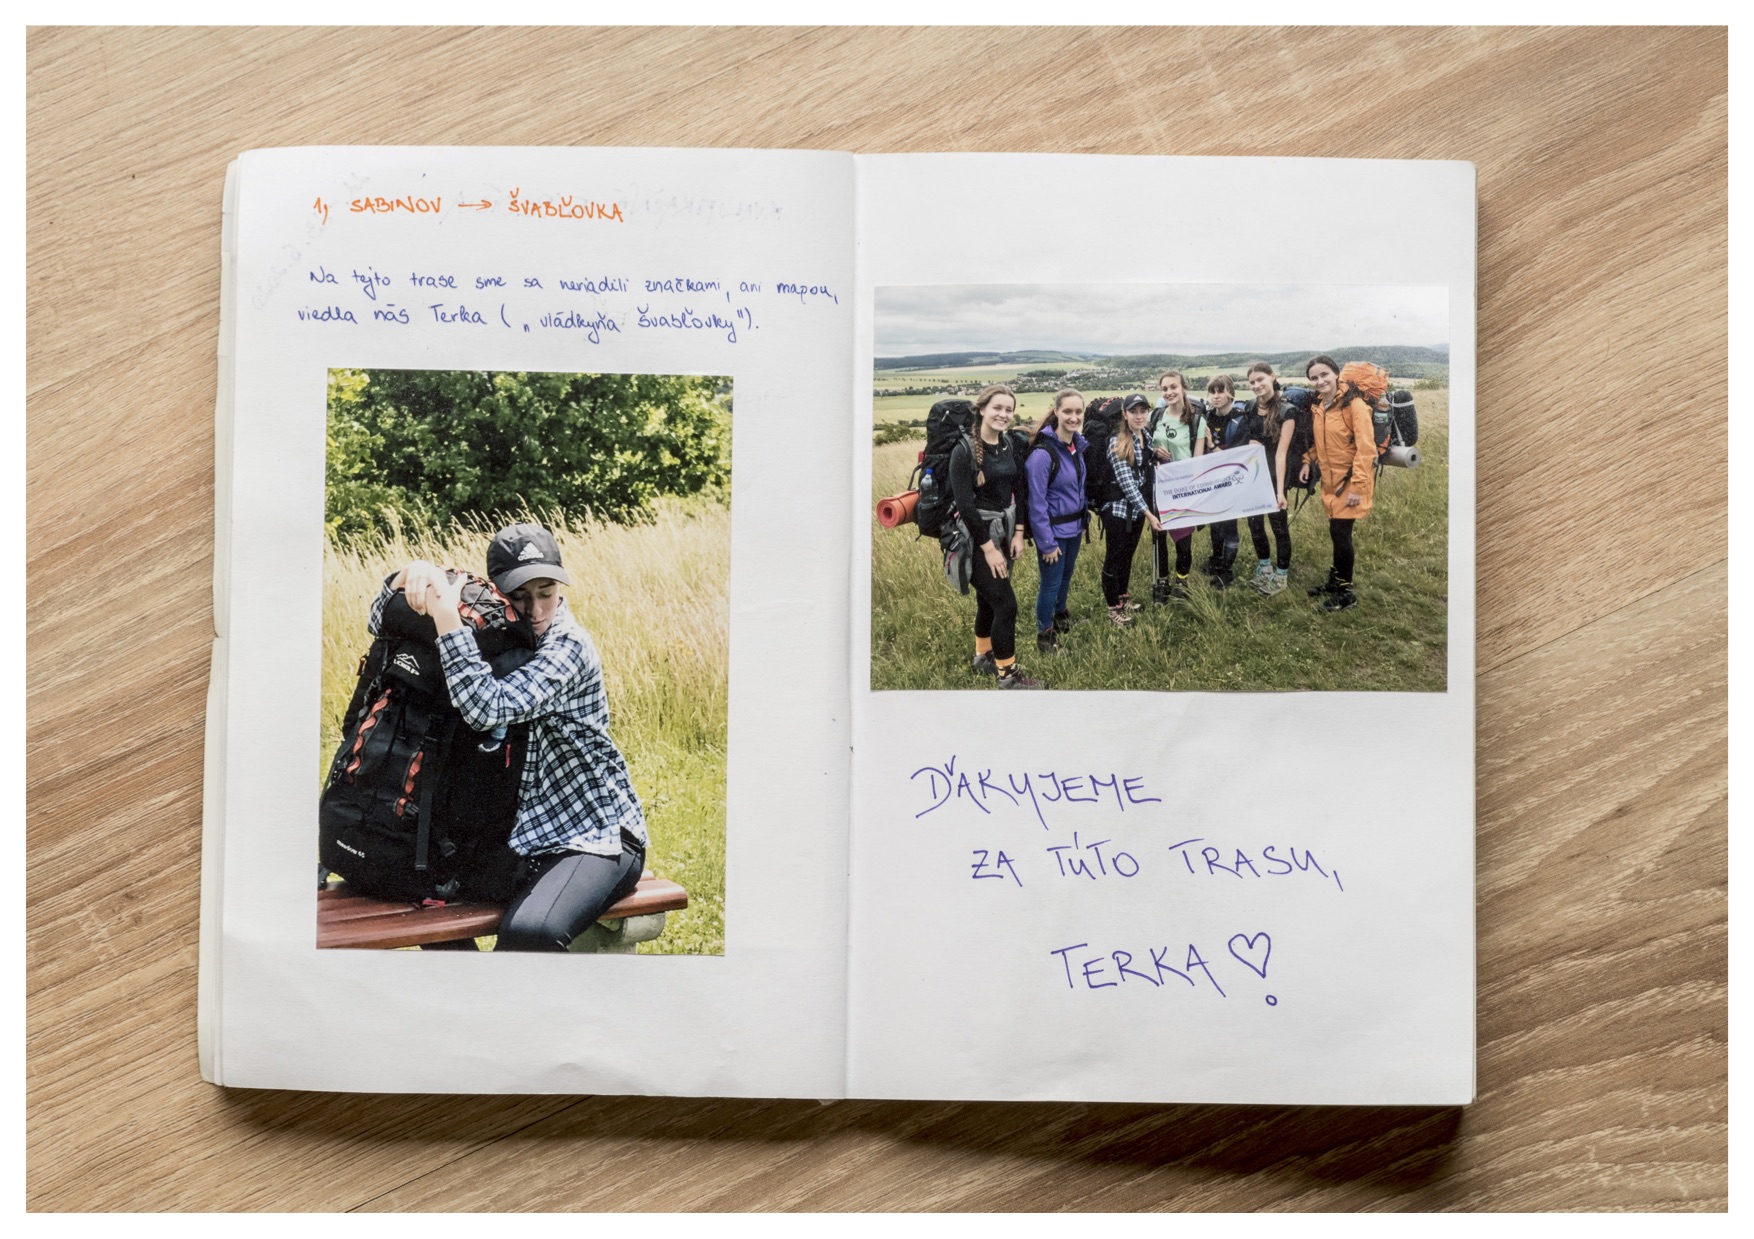 1, SABINOV → ŠVABĽOVKA
Na tejto trase sme sa neriadili značkami, ani mapou,
viedla nás Terka („vládkyňa Švabľovky").
THE DUKE OF EDINBURGH'S
INTERNATIONAL AWARD
ĎAKUJEME
ZA TÚTO TRASU,
TERKA ♡